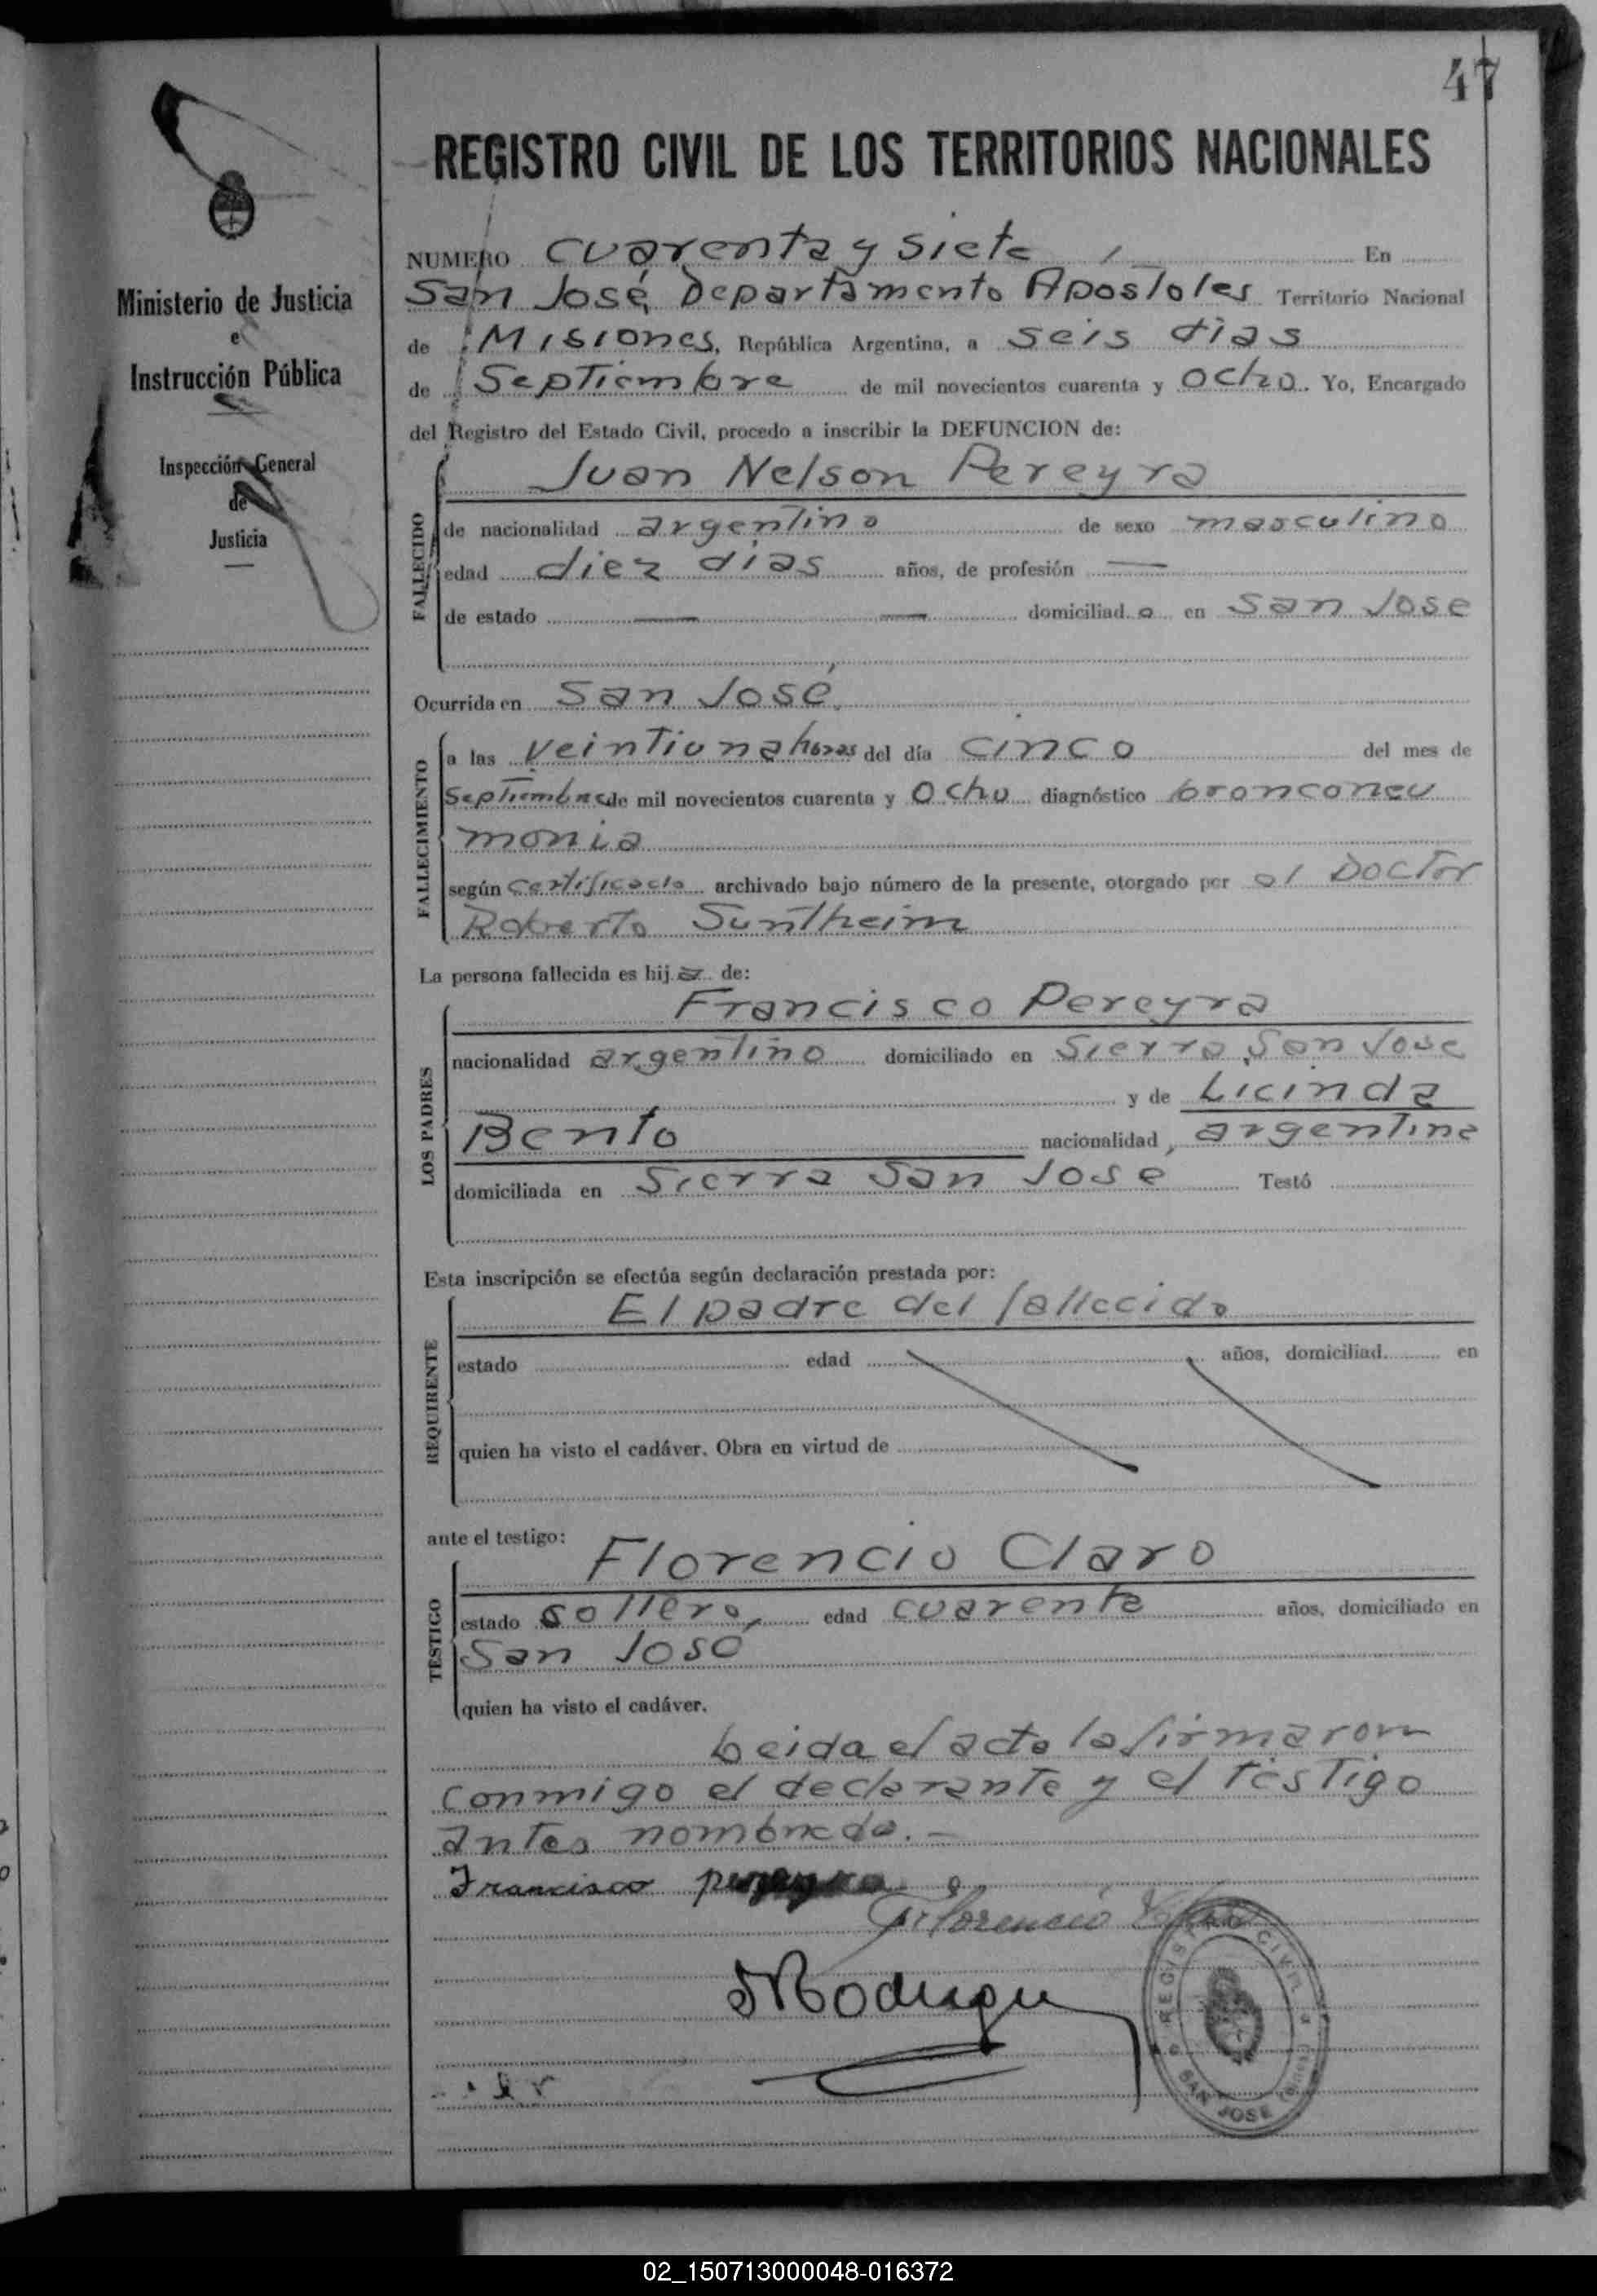 47
REGISTRO CIVIL DE LOS TERRITORIOS NACIONALES
Ministerio de Justicia
e
Instrucción Pública
Inspección General
de
Justicia
NUMERO cuarenta y siete En
San José, Departamento Apóstoles Territorio Nacional
de Misiones, República Argentina, a seis dias
de Septiembre de mil novecientos cuarenta y ocho. Yo, Encargado
del Registro del Estado Civil, procedo a inscribir la DEFUNCION de:
FALLECIDO
Juan Nelson Pereyra
de nacionalidad argentino de sexo masculino
edad diez dias años, de profesión —
de estado — — domiciliad o en San Jose
Ocurrida en San José,
FALLECIMIENTO
a las veintiuna horas del día cinco del mes de
Septiembre de mil novecientos cuarenta y ocho diagnóstico bronconeu
monia
según certificado archivado bajo número de la presente, otorgado por el Doctor
Roberto Suntheim
La persona fallecida es hij o de:
LOS PADRES
Francisco Pereyra
nacionalidad argentino domiciliado en Sierra San Jose
y de Licinda
Bento nacionalidad, argentina
domiciliada en Sierra San Jose Testó
Esta inscripción se efectúa según declaración prestada por:
REQUIRENTE
El padre del fallecido
estado edad años, domiciliad en
quien ha visto el cadáver. Obra en virtud de
ante el testigo:
TESTIGO
Florencio Claro
estado soltero, edad cuarenta años, domiciliado en
San José
quien ha visto el cadáver.
Leida el acta la firmaron
conmigo el declarante y el testigo
antes nombrado. —
Francisco pereyra
Florencio
REGISTRO CIVIL
SAN JOSE
02_150713000048-016372